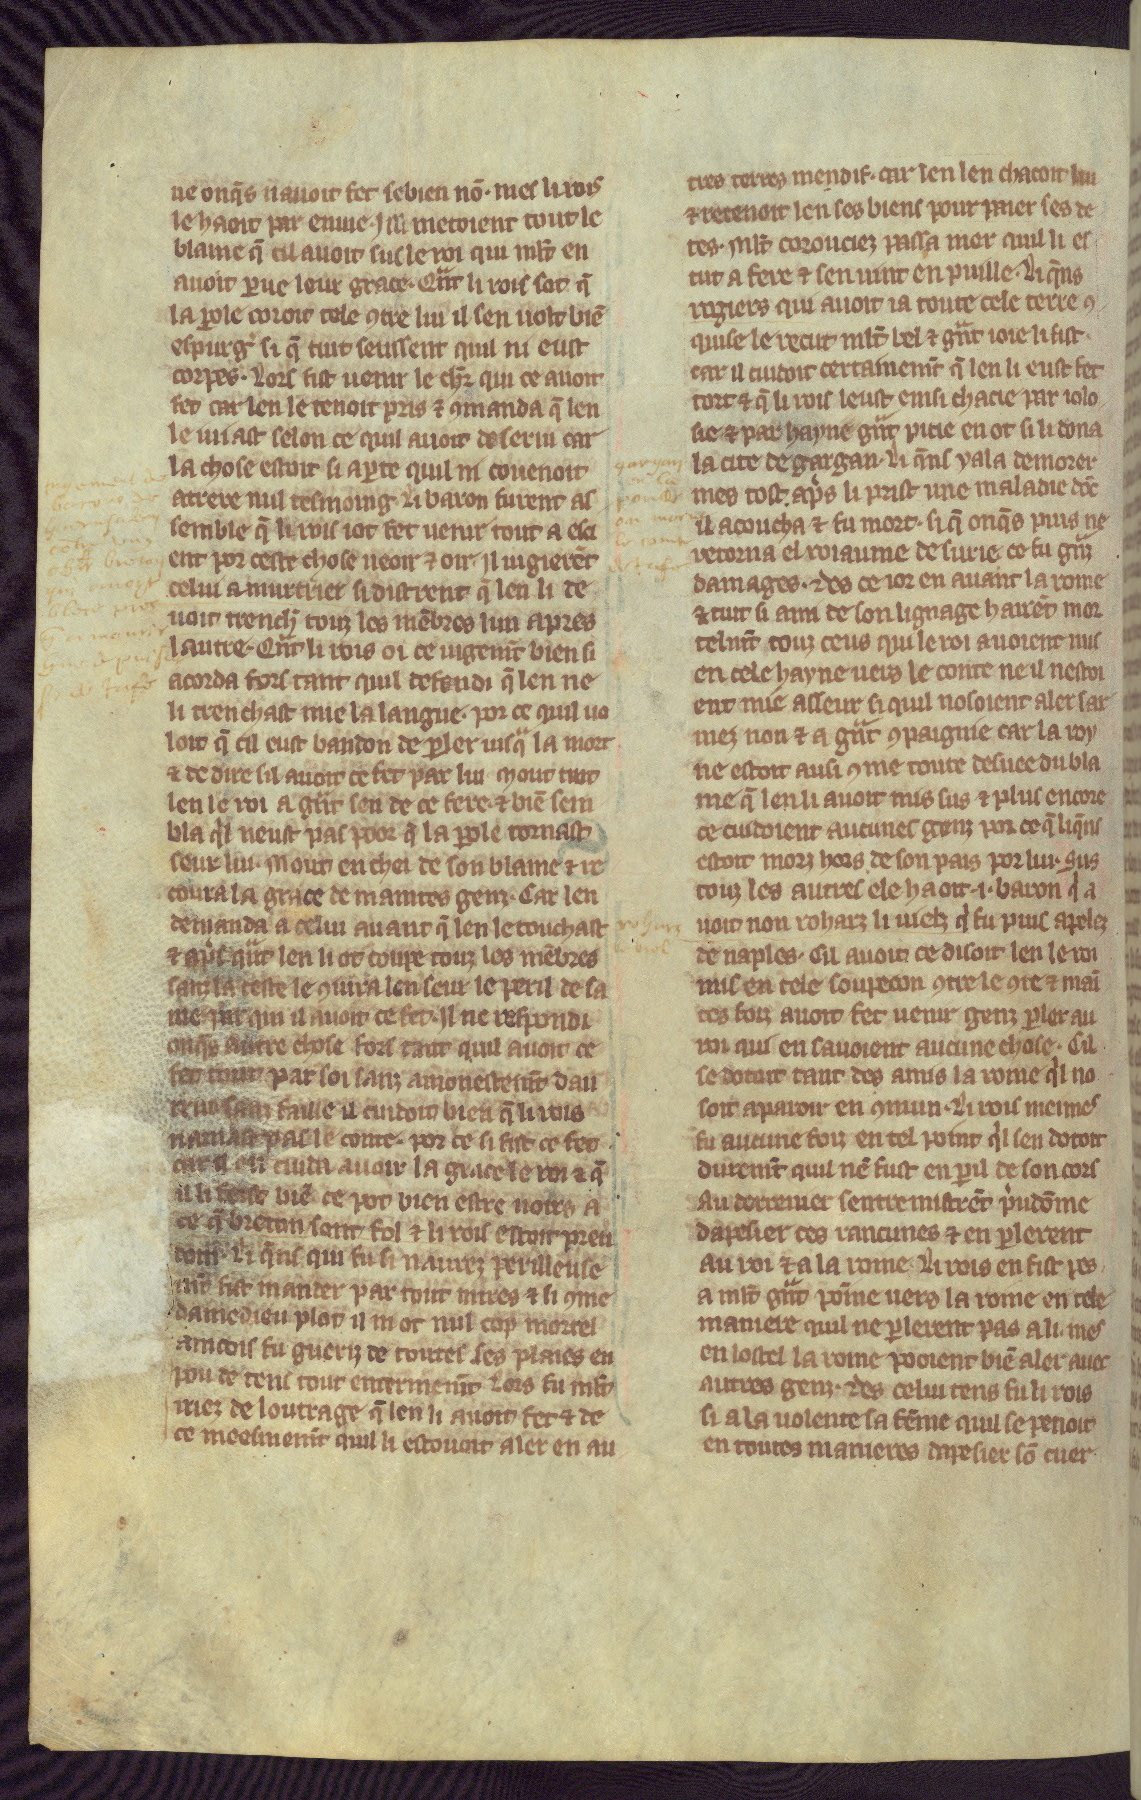 ne onq̃s nauoit fet se bien nõ. mes li rois
le haoit par enuie. Jlli metoient tout le
blame q̃ cil auoit sus le roi qui ml't en
auoit p̱ue leur grace. Qñt li rois sot q̃
la p̱ole coroit tele 9tre lui il sen uolt biẽ
espurg̾ si q̃ tuit seussent quil ni eust
corpes. Lors fist uenir le ch̃r qui ce auoit
fet car len le tenoit pris ⁊ 9manda q̃ len
le iuiast selon ce quil auoit deserui car
la chose estoit si ap̱te quil ni couenoit
atrere nul tesmoing. Li baron furent as
semble q̃ li rois iot fet uenir tout a esci
ent por ceste chose ueoir ⁊ oir. Jl iugierẽt
celui a murtrier si distrent q̃ len li de
uoit trench̾ touz les mẽbres lun apres
lautre. Qñt li rois oi ce iugem̃t bien si
acorda fors tant quil defendi q̃ len ne
li trenchast mie la langue. por ce quil uo
loit q̃ cil eust bandon de p̱ler iusq̃ la mort
⁊ de dire sil auoit ce fet par lui. Mout tint
len le roi a g̃nt sen de ce fere. ⁊ biẽ sem
bla q̾l neust pas poor q̃ la p̱ole tornast
seur lui. Mout enchei de son blame ⁊ re
coura la grace de maintes genz. Car len
demanda a celui auant q̃ len le touchast
⁊ ap̾s q̃nt len li ot coupe touz les mẽbres
sanz la teste le 9iura len seur le peril de sa
me par qui il auoit ce fet. Jl ne respondi
onq̃s autre chose fors tant quil auoit ce
fet tout par soi sanz amonestem̃t dau
trui sanz faille il cuidoit bien q̃ li rois
namast pas le conte. por ce si fist ce fet
car il en cuida auoir la grace le roi ⁊ q̃
il li feist biẽ. ce pot bien estre noirs a
ce q̃ breton sont fol ⁊ li rois estoit preu
dom. Li q̃ns qui fu si naurez perilleuse
m̃t fist mander par tout mires ⁊ si 9me
damedieu plot il ni ot nul cop mortel
aincois fu gueriz de toutes ses plaies en
pou de tens tout entierem̃t. Lors fu ml't
iriez de loutrage q̃ len li auoit fet ⁊ de
ce meesmem̃t quil li estouoit aler en au
tres terres mendis. car len len chacoit hui
⁊ retenoit len ses biens pour paier ses de
tes. Ml't corouciez passa mer quil li es
tut a fere ⁊ sen uint en puille. Li q̃ns
rogiers qui auoit ia toute cele terre 9
quise le recut ml't bel ⁊ g̃nt ioie li fist.
car il cuidoit certainem̃t q̃ len li eust fet
tort ⁊ q̃ li rois leust einsi chacie par ialo
sie ⁊ par hayne g̃nt pitie en ot si li dona
la cite de gargan. Li q̃ns yala demorer
mes tost ap̾s li prist une maladie dõt
il acoucha ⁊ fu mort. si q̃ onq̃s puis ne
retorna el roiaume de surie ce fu g̃nz
damages. des ce ior en auant la roine
⁊ tuit si ami de son lignage hairẽt mor
telm̃t touz ceus qui le roi auoient mis
en cele hayne uers le conte ne il nestoi
ent mie asseur si quil nosoient aler sar
mez non ⁊ a g̃nt 9paignie car la roy
ne estoit ausi 9me toute desuee du bla
me q̃ len li auoit mis sus ⁊ plus encore
ce cuidoient aucunes genz por ce q̃ li q̃ns
estoit morz hors de son pais por lui. Sus
touz les autres ele haoit .i. baron q̾ a
uoit non roharz li uielz q̾ fu puis apelez
de naples. Cil auoit ce disoit len le roi
mis en cele soupecon 9tre le 9te ⁊ mai̾
tes foiz auoit fet uenir genz p̱ler au
roi qui en sauoient aucune chose. Cil
se dotoit tant des amis la roine q̾l no
soit aparoir en 9mun. Li rois meimes
fu aucune foiz en tel point q̾l sen dotoit
durem̃t quil nẽ fust en p̱il de son cors
au derrenier sentremistrẽt p̾udõme
dapesier ces rancunes ⁊ en p̱lerent
au roi ⁊ a la roine. Li rois en fist pes
a ml't g̃nt poĩne uers la roine en cele
maniere quil ne p̱lerent pas a li. mes
en lostel la roine pooient biẽ aler auec
autres genz. Des celui tens fu li rois
si a la uolente sa fẽme quil se penoit
en toutes manieres dapesier sõ cuer.
gargan
roharz